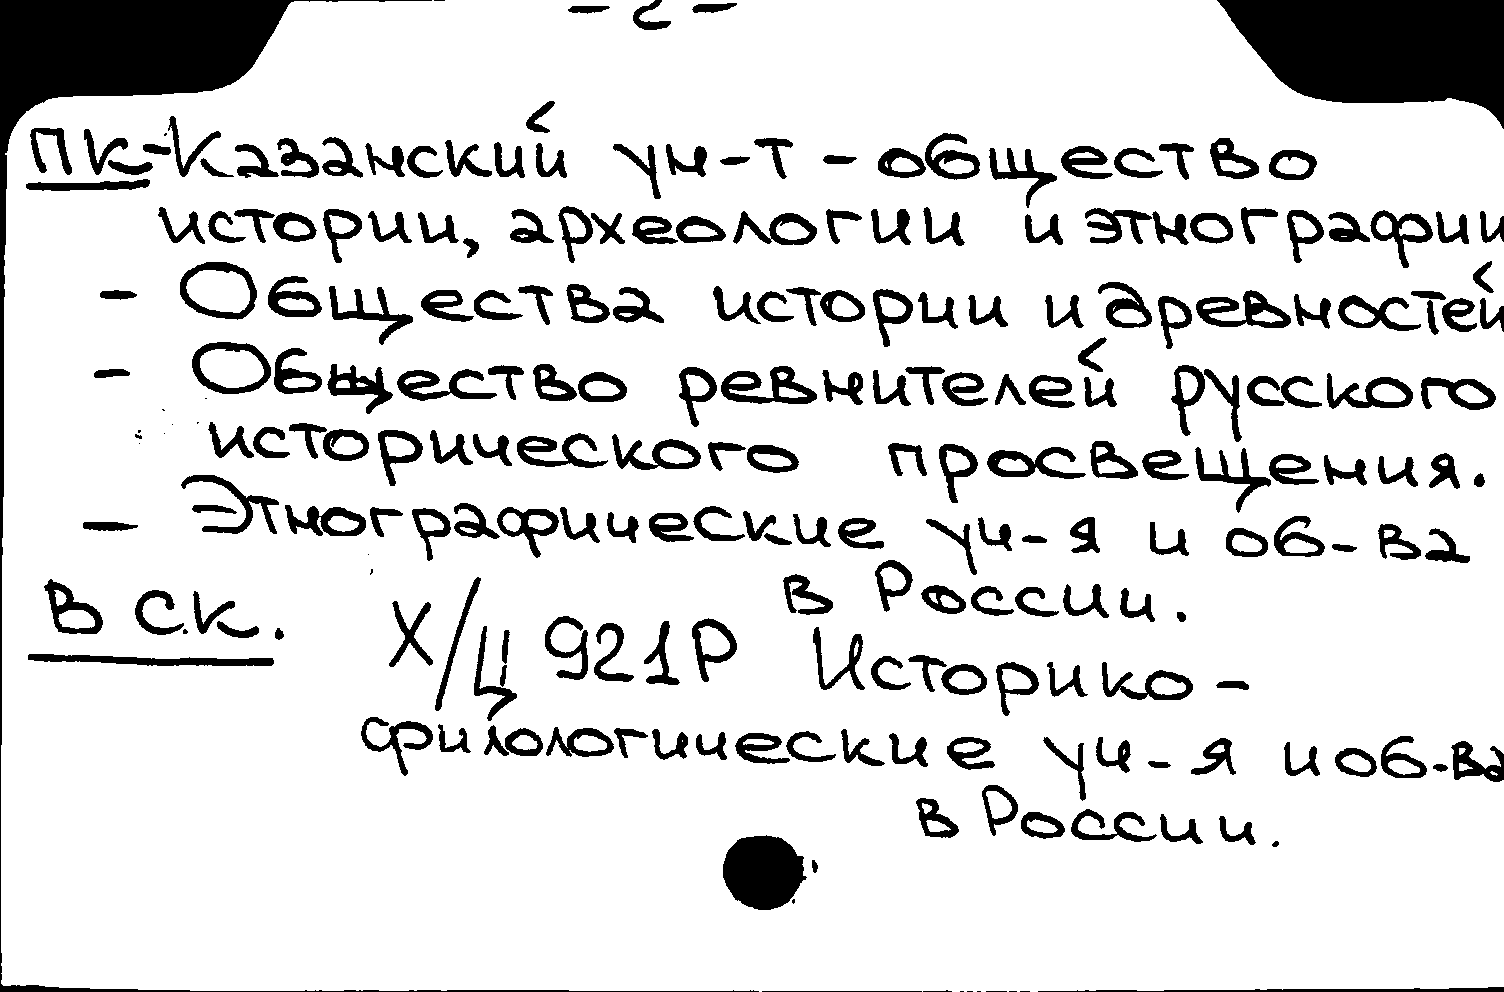 - 2 -
ПК-Казанский ун-т - общество
истории, археологии и этнографии
- Общества истории и древностей
- Общество ревнителей русского
исторического просвещения.
- Этнографические уч-я и об-ва
в России.
В С.К. Х/Ц 921Р Историко-
филологические уч-я и об-ва
в России.